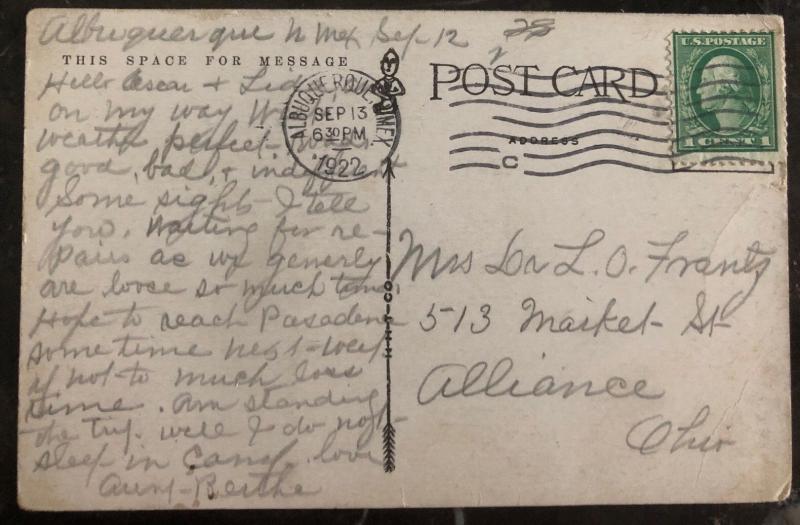 Albuquerque N Mex Sep 12
THIS SPACE FOR MESSAGE
Hello Oscar +
on my way
weather perfect
good, bad, + indifferent
Some sight I tell
you. Waiting for re-
pairs as we generly
are loose so much time.
Hope to reach Pasadena
some time next week
if not to much loss
time. Am standing
the trip well I do not
sleep in Camp. love
Aunt Berthe
ALBUQUERQUE
N. MEX.
SEP 13
6 30 PM
1922
POST CARD
ADDRESS
C
U.S. POSTAGE
1 CENT 1
Mrs Dr L. O. Frantz
513 Market St
Alliance
Ohio